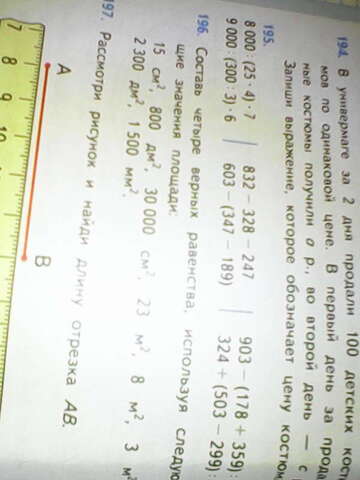 194. В универмаге за 2 дня продали 100 детских
мов по одинаковой цене. В первый день за
ные костюмы получили a р., во второй день — с
Запиши выражение, которое обозначает цену
195.
8 000 : (25 · 4) · 7 | 832 − 328 − 247 | 903 − (178 + 359) :
9 000 : (300 : 3) · 6 | 603 − (347 − 189) | 324 + (503 − 299) :
196. Составь четыре верных равенства, используя
щие значения площади:
15 см², 800 дм², 30 000 см², 23 м², 8 м², 3
2 300 дм², 1 500 мм².
197. Рассмотри рисунок и найди длину отрезка AB.
A B
7 8 9 10